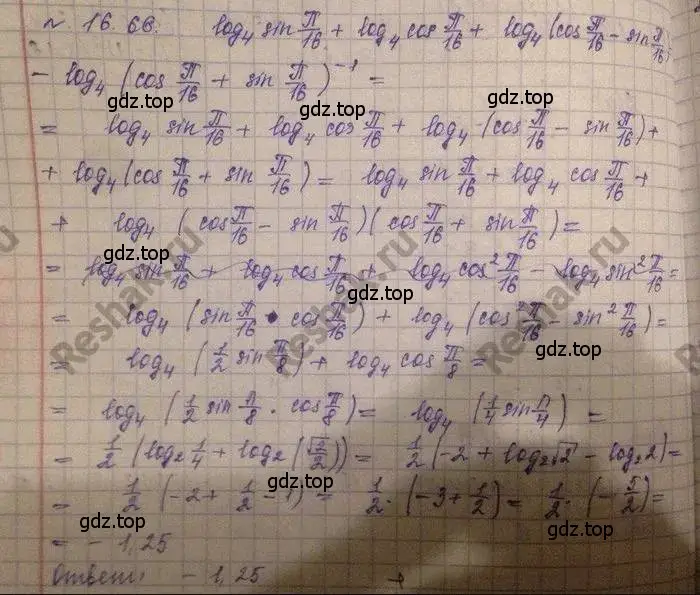 № 16.66. log₄ sin π/16 + log₄ cos π/16 + log₄ (cos π/16 - sin π/16) -
- log₄ (cos π/16 + sin π/16)⁻¹ =
gdz.top gdz.top
= log₄ sin π/16 + log₄ cos π/16 + log₄ (cos π/16 - sin π/16) +
gdz.top
+ log₄ (cos π/16 + sin π/16) = log₄ sin π/16 + log₄ cos π/16 +
gdz.top gdz.top
+ log₄ (cos π/16 - sin π/16)(cos π/16 + sin π/16) =
gdz.top
= log₄ sin π/16 + log₄ cos π/16 + log₄ cos² π/16 - log₄ sin² π/16 =
gdz.top
= log₄ (sin π/16 · cos π/16) + log₄ (cos² π/16 - sin² π/16) =
gdz.top
= log₄ (1/2 sin π/8) + log₄ cos π/8 =
= log₄ (1/2 sin π/8 · cos π/8) = log₄ (1/4 sin π/4) =
gdz.top
= 1/2 (log₂ 1/4 + log₂ (√2/2)) = 1/2 (-2 + log₂ √2 - log₂ 2) =
gdz.top
= 1/2 (-2 + 1/2 - 1) = 1/2 · (-3 + 1/2) = 1/2 · (-5/2) =
gdz.top gdz.top
= - 1,25
Ответ: - 1,25 +
gdz.top
Reshak.ru
Reshak.ru
Reshak.ru